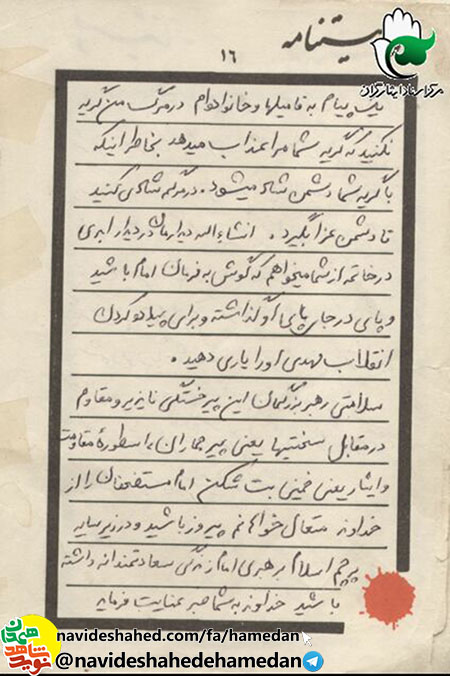 وصیتنامه
مرکز اسناد ایثارگران
۱۶
یک پیام به فامیلها و خانواده‌ام در مرگ من گریه
نکنید که گریه شما مرا عذاب میدهد بخاطر اینکه
با گریه شما دشمن شاد میشود. در مرگم شادی کنید
تا دشمن عزا بگیرد. انشاءالله دیدارمان در دیدار ابدی
در خاتمه از شما میخواهم که گوش به فرمان امام باشید
و پای در جای پای او گذاشته و برای پیاده کردن
انقلاب مهدی او را یاری دهید.
سلامتی رهبر بزرگمان این پیر خستگی ناپذیر و مقاوم
در مقابل سختیها یعنی پیر جماران، اسطوره مقاومت
و ایثار یعنی خمینی بت شکن امام مستضعفان را از
خداوند متعال خواهانم پیروز باشید و در زیر سایه
پرچم اسلام برهبری امام زندگی سعادتمندانه داشته
باشید خداوند به شما صبر عنایت فرماید
نوید شاهد همدان
navideshahed.com/fa/hamedan
@navideshahedehamedan